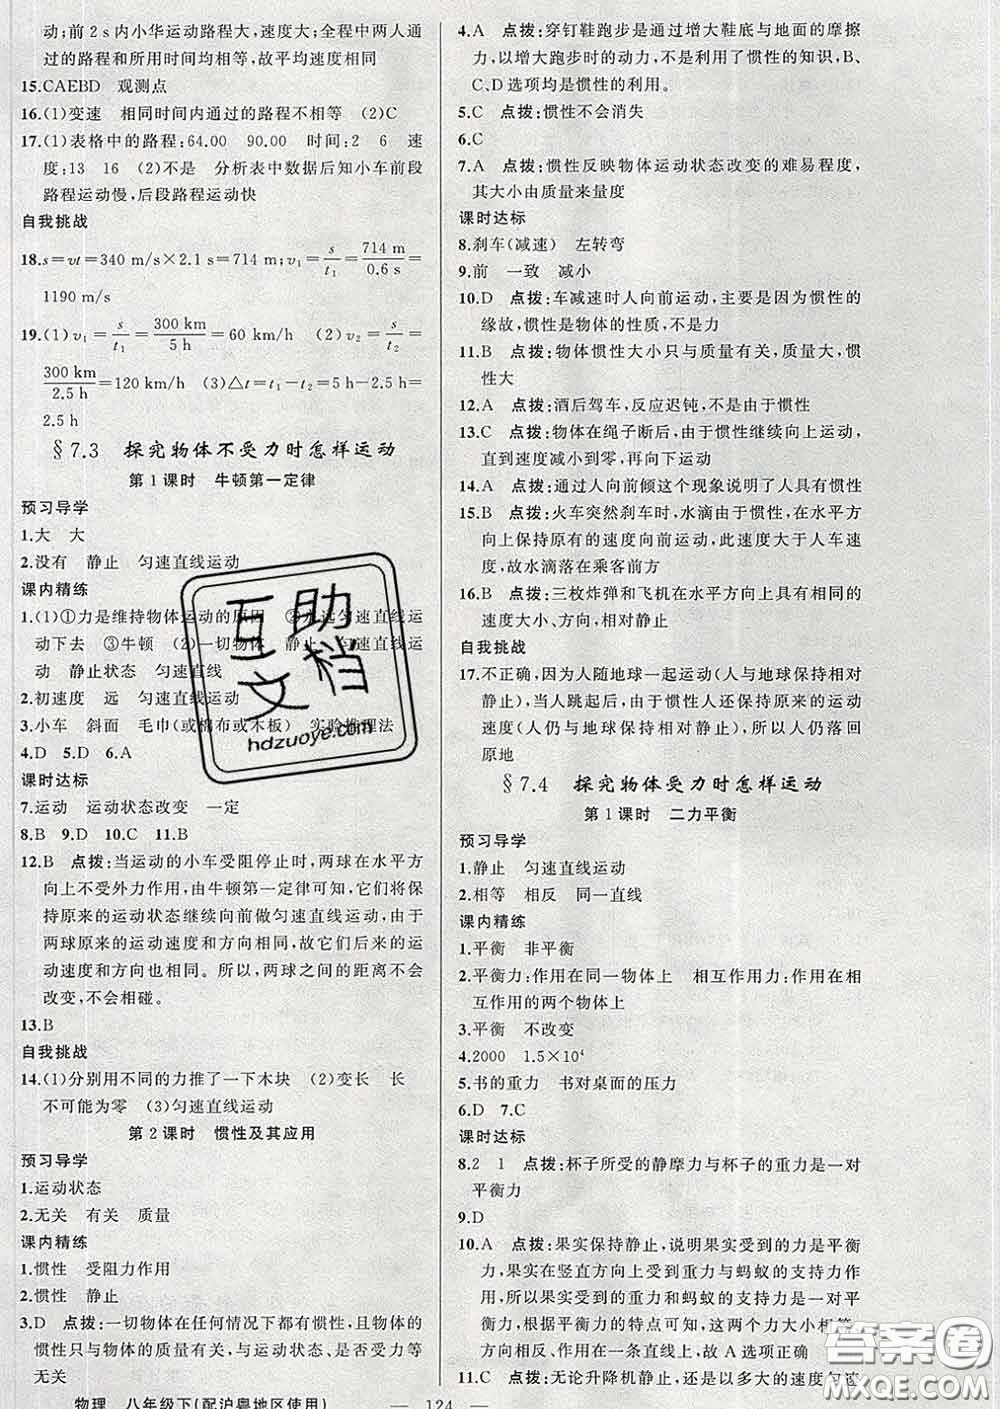 动;前2s内小华运动路程大,速度大;全程中两人通
过的路程和所用时间均相等,故平均速度相同
15.CAEBD 观测点
16.(1)变速 相同时间内通过的路程不相等 (2)C
17.(1)表格中的路程:64.00 90.00 时间:2 6 速
度:13 16 (2)不是 分析表中数据后知小车前段
路程运动慢,后段路程运动快
自我挑战
18.s=vt=340 m/s×2.1 s=714 m;v₁=s/t₁=714 m/0.6 s=
1190 m/s
19.(1)v₁=s/t₁=300 km/5 h=60 km/h (2)v₂=s/t₂=
300 km/2.5 h=120 km/h (3)△t=t₁-t₂=5 h-2.5 h=
2.5 h
§7.3 探究物体不受力时怎样运动
第1课时 牛顿第一定律
预习导学
1.大 大
2.没有 静止 匀速直线运动
课内精练
1.(1)①力是维持物体运动的原因 ②永远匀速直线运
动下去 ③牛顿 (2)一切物体 静止 匀速直线运
动 静止状态 匀速直线
2.初速度 远 匀速直线运动
3.小车 斜面 毛巾(或棉布或木板) 实验推理法
4.D 5.D 6.A
课时达标
7.运动 运动状态改变 一定
8.B 9.D 10.C 11.B
12.B 点拨:当运动的小车受阻停止时,两球在水平方
向上不受外力作用,由牛顿第一定律可知,它们将保
持原来的运动状态继续向前做匀速直线运动,由于
两球原来的运动速度和方向相同,故它们后来的运
动速度和方向也相同。所以,两球之间的距离不会
改变,不会相碰。
13.B
自我挑战
14.(1)分别用不同的力推了一下木块 (2)变长 长
不可能为零 (3)匀速直线运动
第2课时 惯性及其应用
预习导学
1.运动状态
2.无关 有关 质量
课内精练
1.惯性 受阻力作用
2.惯性 静止
3.D 点拨:一切物体在任何情况下都有惯性,且物体的
惯性只与物体的质量有关,与运动状态、是否受力等
无关
物理 八年级下(配沪粤地区使用)
4.A 点拨:穿钉鞋跑步是通过增大鞋底与地面的摩擦
力,以增大跑步时的动力,不是利用了惯性的知识,B、
C、D选项均是惯性的利用。
5.C 点拨:惯性不会消失
6.C
7.A 点拨:惯性反映物体运动状态改变的难易程度,
其大小由质量来量度
课时达标
8.刹车(减速) 左转弯
9.前 一致 减小
10.D 点拨:车减速时人向前运动,主要是因为惯性的
缘故,惯性是物体的性质,不是力
11.B 点拨:物体惯性大小只与质量有关,质量大,惯
性大
12.A 点拨:酒后驾车,反应迟钝,不是由于惯性
13.C 点拨:物体在绳子断后,由于惯性继续向上运动,
直到速度减小到零,再向下运动
14.A 点拨:通过人向前倾这个现象说明了人具有惯性
15.B 点拨:火车突然刹车时,水滴由于惯性,在水平方
向上保持原有的速度向前运动,此速度大于人车速
度,故水滴落在乘客前方
16.B 点拨:三枚炸弹和飞机在水平方向上具有相同的
速度大小、方向,相对静止
自我挑战
17.不正确,因为人随地球一起运动(人与地球保持相对
静止),当人跳起后,由于惯性人还保持原来的运动
速度(人仍与地球保持相对静止),所以人仍落回
原地
§7.4 探究物体受力时怎样运动
第1课时 二力平衡
预习导学
1.静止 匀速直线运动
2.相等 相反 同一直线
课内精练
1.平衡 非平衡
2.平衡力:作用在同一物体上 相互作用力:作用在相
互作用的两个物体上
3.平衡 不改变
4.2000 1.5×10⁴
5.书的重力 书对桌面的压力
6.D 7.C
课时达标
8.2 1 点拨:杯子所受的静摩力与杯子的重力是一对
平衡力
9.D
10.A 点拨:果实保持静止,说明果实受到的力是平衡
力,果实在竖直方向上受到重力与蚂蚁的支持力作
用,所以果实受到的重力和蚂蚁的支持力是一对平
衡力,根据平衡力的特点可知,这两个力大小相等,
方向相反、作用在一条直线上,故A选项正确
11.C 点拨:无论升降机静止,还是以多大的速度匀速
— 124 —
互助
文档
hdzuoye.com
答案圈
MXQE.COM